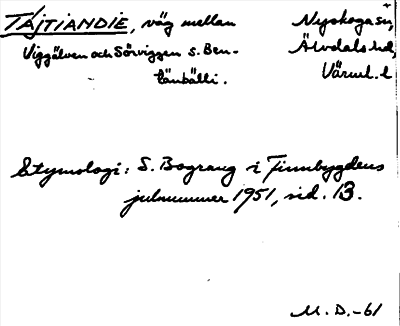 TÄJTIANDIE, väg mellan Nyskoga sn,
Viggälven och Sörviggen s. Ben- Älvdals hd,
tänkälli. Värml. l
Etymologi: S. Bograng i Finnbygdens
julnummer 1951, sid. 13.
M. D. -61